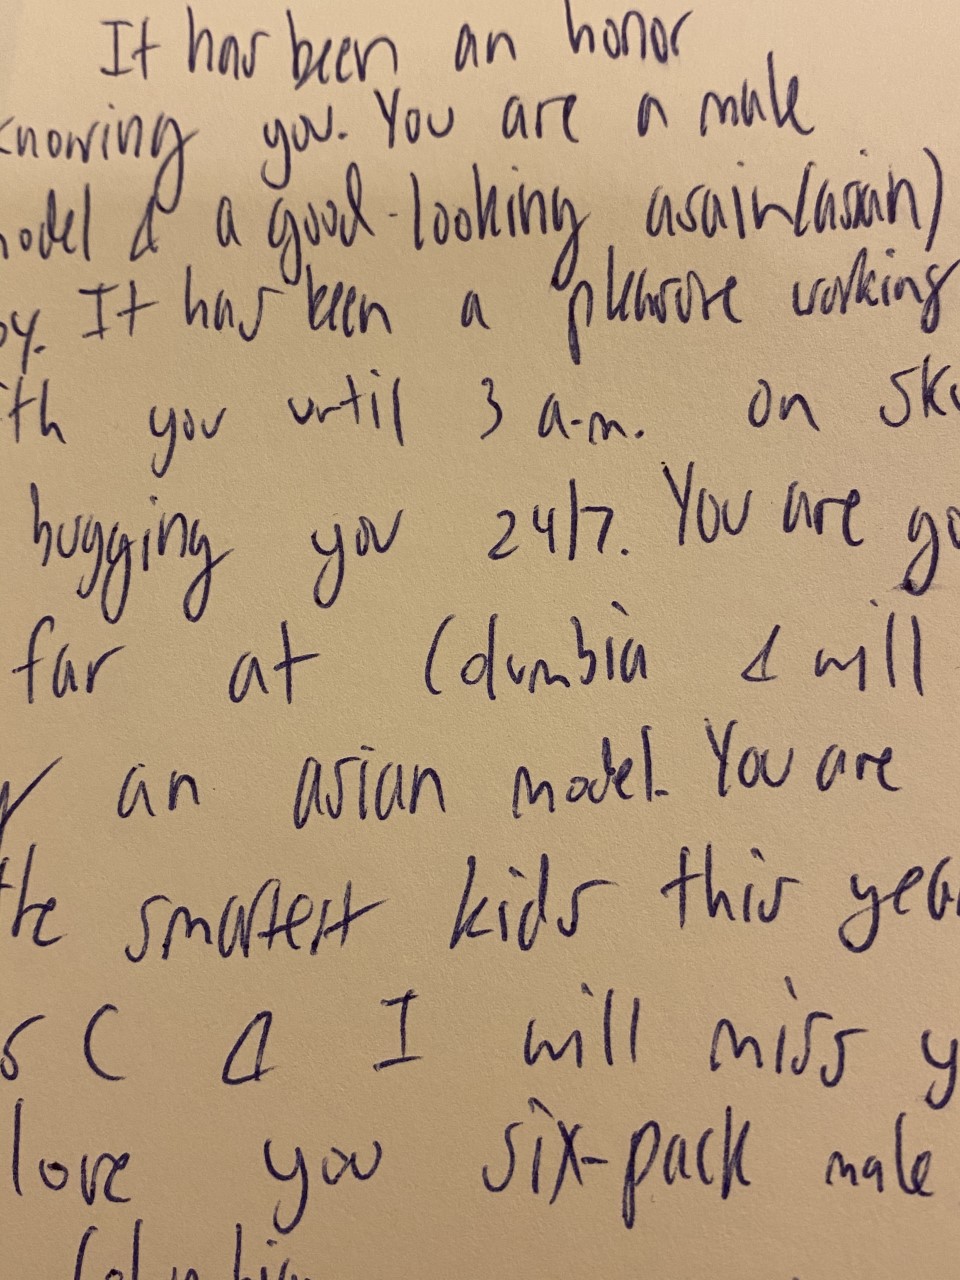 It has been an honor
knowing you. You are a male
model & a good-looking asain(asian)
It has been a pleasure working
with you until 3 a.m. on
bugging you 24/7. You are
far at Columbia & will
an asian model. You are
the smartest kids this year
C & I will miss
love you six-pack male
Columbia